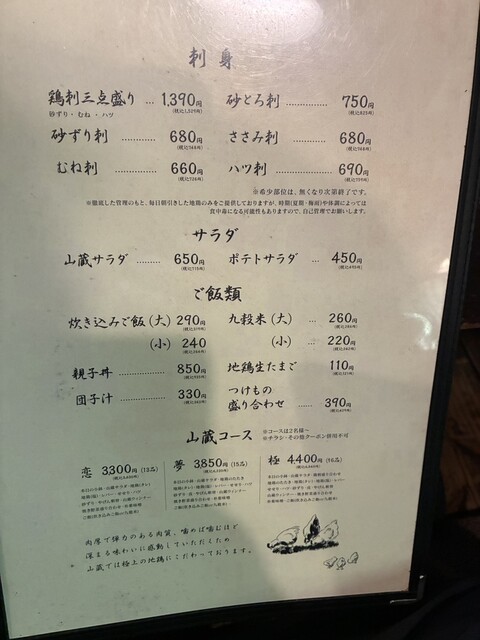 刺身
鶏刺三点盛り … 1,390円
(税込1,529円)
砂ずり・むね・ハツ
砂とろ刺 ………… 750円
(税込825円)
砂ずり刺 ………… 680円
(税込748円)
ささみ刺 ………… 680円
(税込748円)
むね刺 ………… 660円
(税込726円)
ハツ刺 ………… 690円
(税込759円)
※希少部位は、無くなり次第終了です。
※徹底した管理のもと、毎日朝引きした地鶏のみをご提供しておりますが、時期(夏期・梅雨)や体調によっては
食中毒になる可能性もありますので、自己管理でお願いします。
サラダ
山蔵サラダ ……… 650円
(税込715円)
ポテトサラダ … 450円
(税込495円)
ご飯類
炊き込みご飯(大) 290円
(税込319円)
九穀米(大) … 260円
(税込286円)
(小) 240
(税込264円)
(小) … 220円
(税込242円)
親子丼 ……… 850円
(税込935円)
地鶏生たまご 110円
(税込121円)
団子汁 ……… 330円
(税込363円)
つけもの
盛り合わせ … 390円
(税込429円)
山蔵コース
※コースは2名様~
※チラシ・その他クーポン併用不可
恋 3,300円 (13品)
夢 3,850円 (15品)
極 4,400円 (16品)
肉厚で弾力のある肉質、噛めば噛むほど
深まる味わいに感動していただくため
山蔵では極上の地鶏にこだわっております。